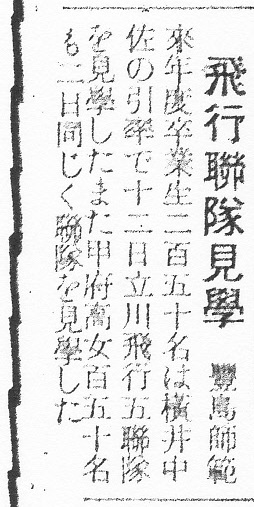 飛行聯隊見學 豐島師範
來年度卒業生二百五十名は橫井中
佐の引率で十二日立川飛行五聯隊
を見學したまた甲府高女百五十名
も二日同じく聯隊を見學した